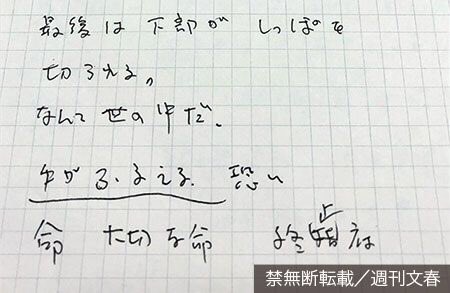 最後は下部がしっぽを
切られる。
なんて世の中だ、
手がふるえる 恐い
命 大切な命 終止府
禁無断転載／週刊文春